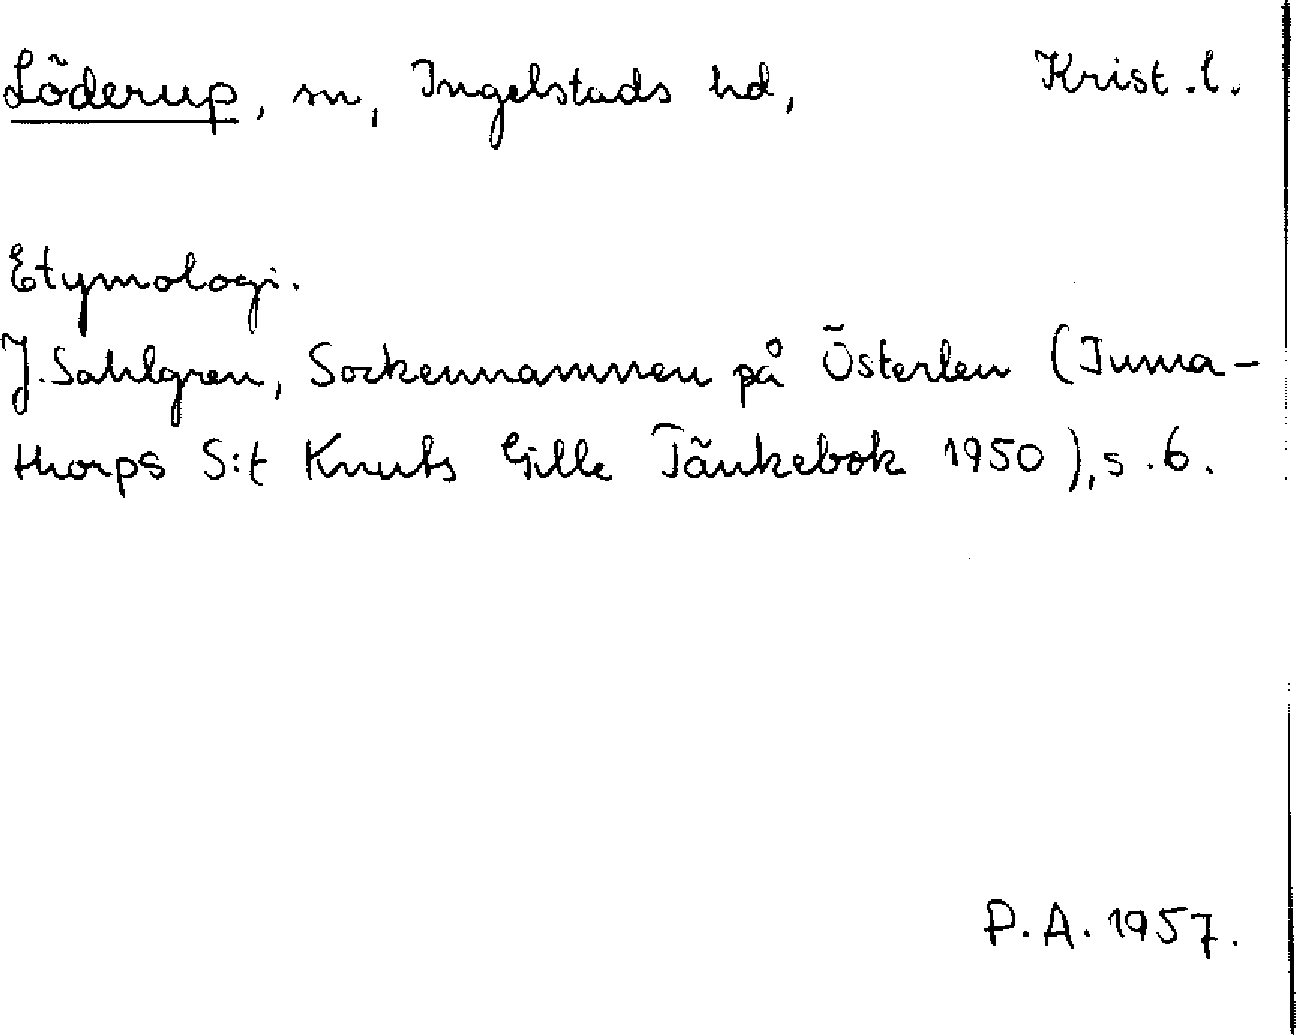 Löderup, sn, Ingelstads hd, Krist.l.
Etymologi.
J. Sahlgren, Sockennamnen på Österlen (Tuma-
thorps S:t Knuts Gille Tänkebok 1950), s. 6.
P.A. 1957.